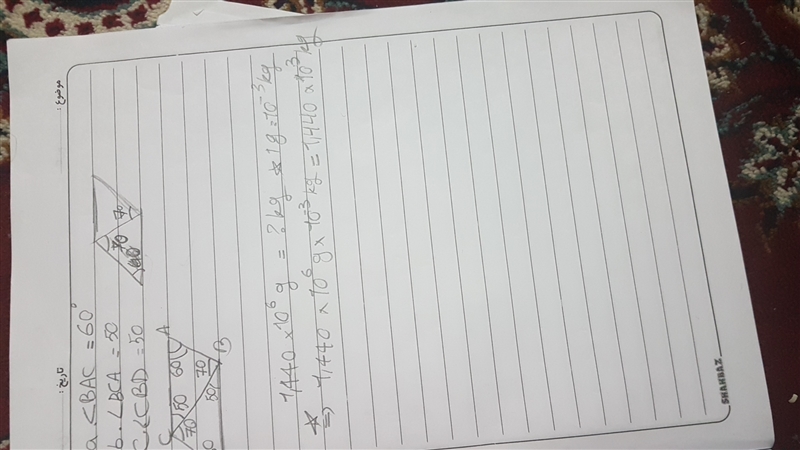 موضوع :
تاریخ :
a. <BAC = 60°
b. <BCA = 50
C. <CBD = 50
70
70
60
C
A
B
50
60
70
70
50
1,440 × 10⁶ g = ? kg * 1g = 10⁻³ kg
* ⇒ 1,440 × 10⁶ g × 10⁻³ kg = 1,440 × 10³ kg
SHAHBAZ